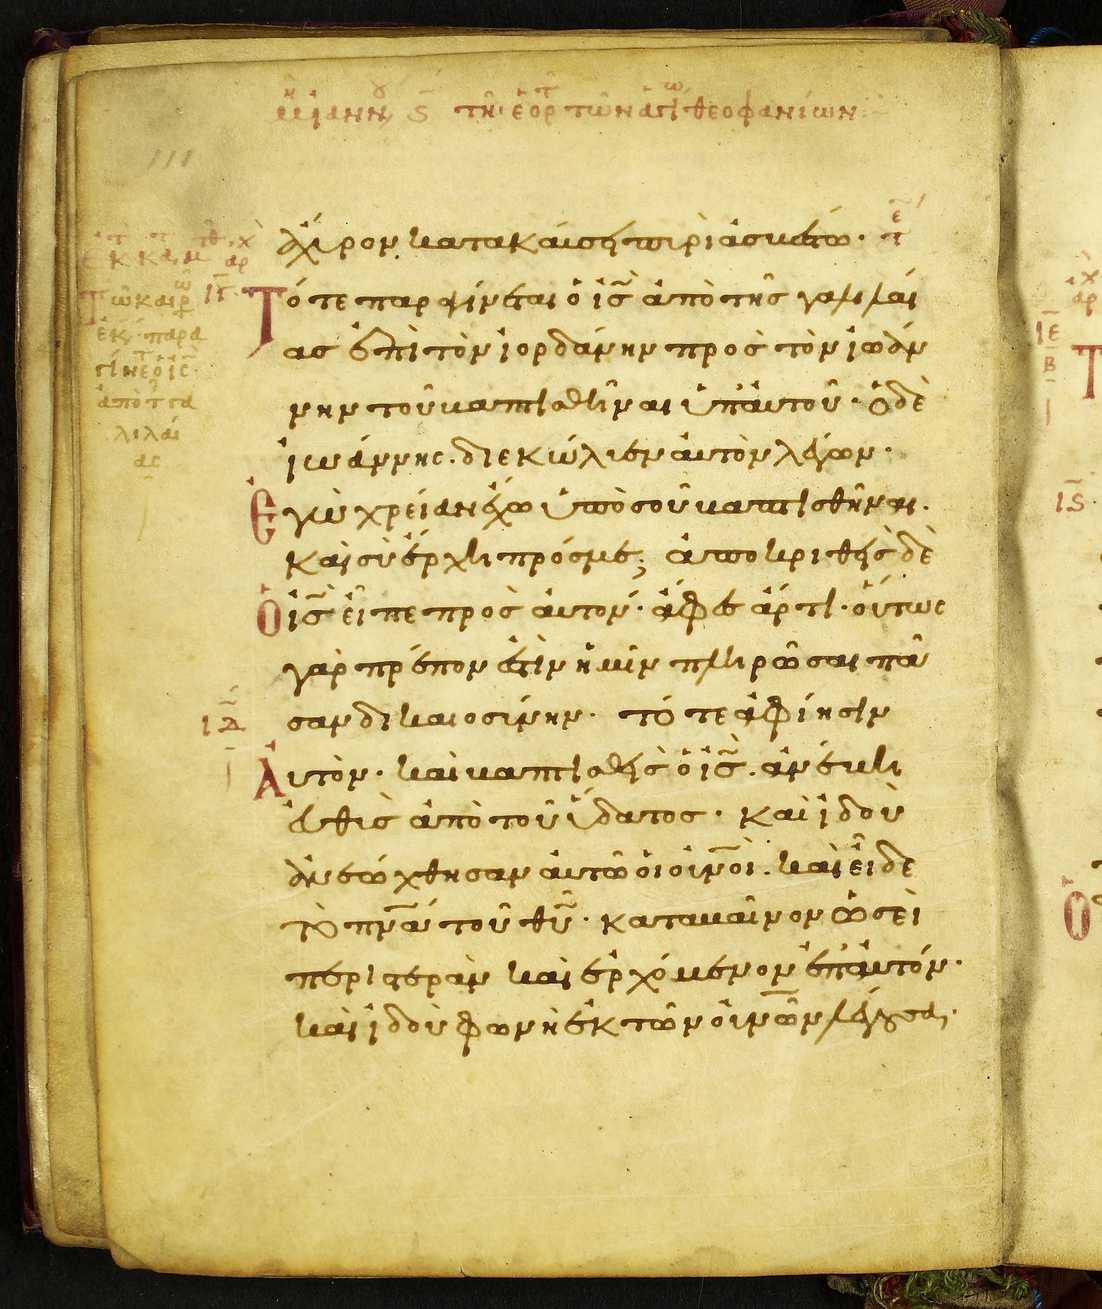 μη ἰαννου ϛ τη ἑορτ των ἁγι θεοφανίων
ἄχυρον κατακαύσει πυρὶ ἀσβέστω. τε
Τότε παραγίνεται ὁ ἰς ἀπὸ τῆς γαλιλαί
ας ἐπὶ τὸν ἰορδάνην πρὸς τὸν ἰωάν
νην τοῦ βαπτισθῆναι ὑπ' αὐτοῦ. ὁ δὲ
ἰωάννης. διεκώλυεν αὐτὸν λέγων.
Ἐγὼ χρείαν ἔχω ὑπὸ σοῦ βαπτισθῆναι.
καὶ σὺ ἔρχη πρός με; ἀποκριθεὶς δὲ
Ὁ ἰς εἶπε πρὸς αὐτόν. ἄφες ἄρτι. οὕτως
γὰρ πρέπον ἐστὶν ἡμῖν πληρῶσαι πᾶ
σαν δικαιοσύνην. τότε ἀφίησιν
Αὐτὸν. καὶ βαπτισθεὶς ὁ ἰς. ἀνέβη
εὐθὺς ἀπὸ τοῦ ὕδατος. καὶ ἰδοὺ
ἀνεώχθησαν αὐτῶ οἱ οὐνοὶ. καὶ εἶδε
τὸ πνα τοῦ θυ. καταβαῖνον ὡσεὶ
περιστερὰν καὶ ἐρχόμενον ἐπ' αὐτόν.
καὶ ἰδοὺ φωνὴ ἐκ τῶν οὐνῶν λέγουσα.
ιγ
Τῶ καιρω
ἐκ. παρα
γίνετ ὁ ις
ἀπὸ τ γα
λιλαί
ας
ιδ
ιε
β
ιϛ